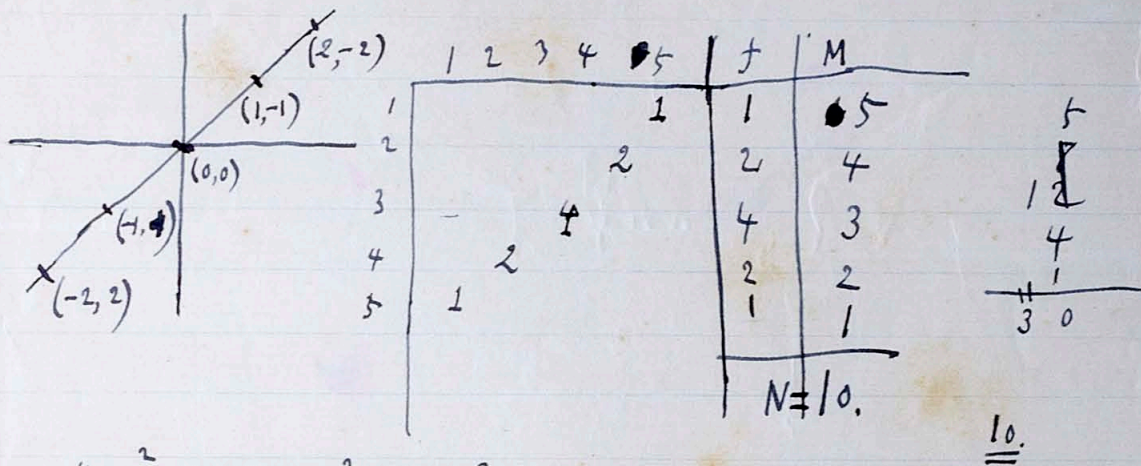 (2,-2)
(1,-1)
(0,0)
(-1, 1)
(-2, 2)
1 2 3 4 5 f M
1 1 1 5
2 2 2 4
3 4 4 3
4 2 2 2
5 1 1 1
N=10.
5
8
12
4
1
30
10.
2 2 2